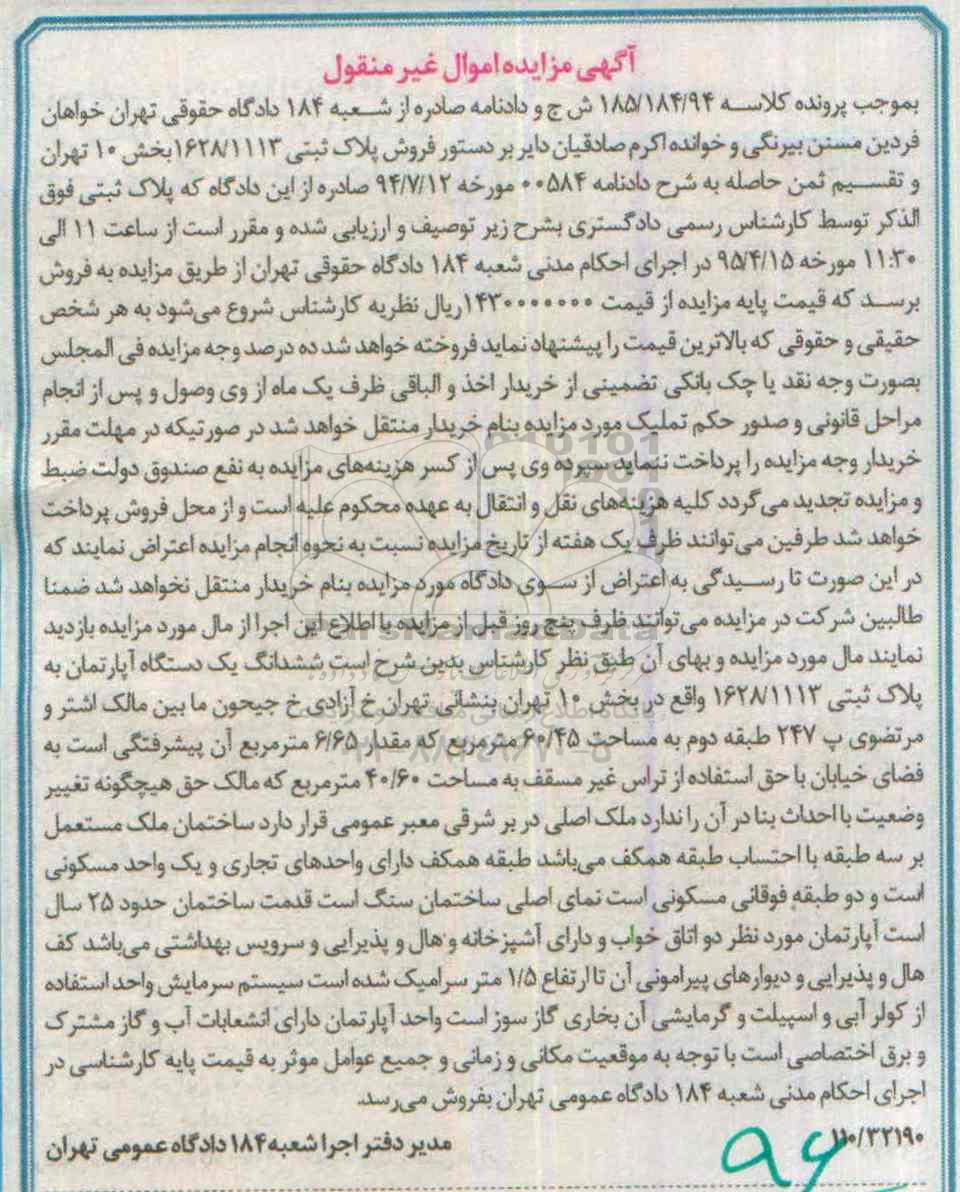 آگهی مزایده اموال غیر منقول
بموجب پرونده کلاسه ۱۸۵/۱۸۴/۹۴ ش ج و دادنامه صادره از شعبه ۱۸۴ دادگاه حقوقی تهران خواهان
فردین مسنن بیرنگی و خوانده اکرم صادقیان دایر بر دستور فروش پلاک ثبتی ۱۶۲۸/۱۱۱۳بخش ۱۰ تهران
و تقسیم ثمن حاصله به شرح دادنامه ۰۰۵۸۴ مورخه ۹۴/۷/۱۲ صادره از این دادگاه که پلاک ثبتی فوق
الذکر توسط کارشناس رسمی دادگستری بشرح زیر توصیف و ارزیابی شده و مقرر است از ساعت ۱۱ الی
۱۱:۳۰ مورخه ۹۵/۴/۱۵ در اجرای احکام مدنی شعبه ۱۸۴ دادگاه حقوقی تهران از طریق مزایده به فروش
برسد که قیمت پایه مزایده از قیمت ۱۴۳۰۰۰۰۰۰۰ریال نظریه کارشناس شروع می‌شود به هر شخص
حقیقی و حقوقی که بالاترین قیمت را پیشنهاد نماید فروخته خواهد شد ده درصد وجه مزایده فی المجلس
بصورت وجه نقد یا چک بانکی تضمینی از خریدار اخذ و الباقی ظرف یک ماه از وی وصول و پس از انجام
مراحل قانونی و صدور حکم تملیک مورد مزایده بنام خریدار منتقل خواهد شد در صورتیکه در مهلت مقرر
خریدار وجه مزایده را پرداخت ننماید سپرده وی پس از کسر هزینه‌های مزایده به نفع صندوق دولت ضبط
و مزایده تجدید می‌گردد کلیه هزینه‌های نقل و انتقال به عهده محکوم علیه است و از محل فروش پرداخت
خواهد شد طرفین می‌توانند ظرف یک هفته از تاریخ مزایده نسبت به نحوه انجام مزایده اعتراض نمایند که
در این صورت تا رسیدگی به اعتراض از سوی دادگاه مورد مزایده بنام خریدار منتقل نخواهد شد ضمنا
طالبین شرکت در مزایده می‌توانند ظرف پنج روز قبل از مزایده با اطلاع این اجرا از مال مورد مزایده بازدید
نمایند مال مورد مزایده و بهای آن طبق نظر کارشناس بدین شرح است ششدانگ یک دستگاه آپارتمان به
پلاک ثبتی ۱۶۲۸/۱۱۱۳ واقع در بخش ۱۰ تهران بنشانی تهران خ آزادی خ جیحون ما بین مالک اشتر و
مرتضوی پ ۲۴۷ طبقه دوم به مساحت ۶۰/۴۵ مترمربع که مقدار ۶/۶۵ مترمربع آن پیشرفتگی است به
فضای خیابان با حق استفاده از تراس غیر مسقف به مساحت ۴۰/۶۰ مترمربع که مالک حق هیچگونه تغییر
وضعیت با احداث بنا در آن را ندارد ملک اصلی در بر شرقی معبر عمومی قرار دارد ساختمان ملک مستعمل
بر سه طبقه با احتساب طبقه همکف می‌باشد طبقه همکف دارای واحدهای تجاری و یک واحد مسکونی
است و دو طبقه فوقانی مسکونی است نمای اصلی ساختمان سنگ است قدمت ساختمان حدود ۲۵ سال
است آپارتمان مورد نظر دو اتاق خواب و دارای آشپزخانه و هال و پذیرایی و سرویس بهداشتی می‌باشد کف
هال و پذیرایی و دیوارهای پیرامونی آن تا ارتفاع ۱/۵ متر سرامیک شده است سیستم سرمایش واحد استفاده
از کولر آبی و اسپیلت و گرمایشی آن بخاری گاز سوز است واحد آپارتمان دارای انشعابات آب و گاز مشترک
و برق اختصاصی است با توجه به موقعیت مکانی و زمانی و جمیع عوامل موثر به قیمت پایه کارشناسی در
اجرای احکام مدنی شعبه ۱۸۴ دادگاه عمومی تهران بفروش می‌رسد.
۱۱۰/۳۲۱۹۰
مدیر دفتر اجرا شعبه ۱۸۴ دادگاه عمومی تهران